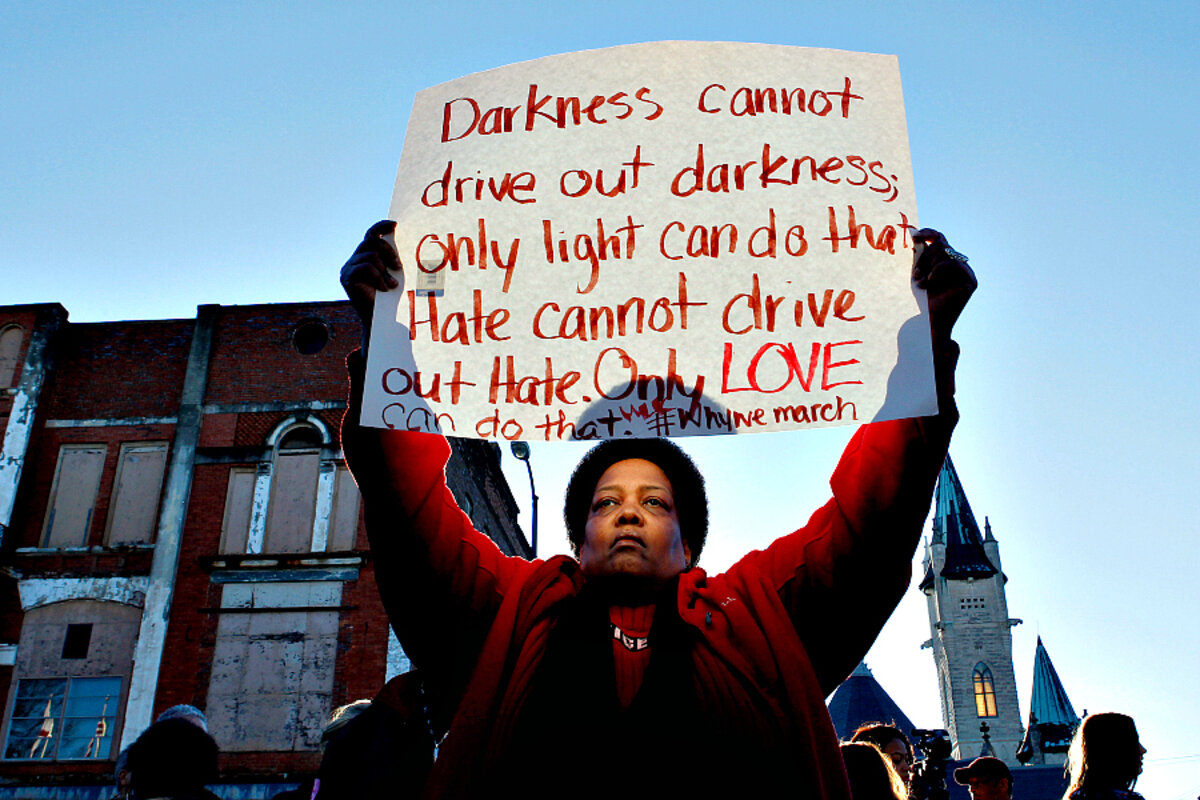 Darkness cannot
drive out darkness;
only light can do that.
Hate cannot drive
out Hate. Only LOVE
can do that. MLK #Whywemarch